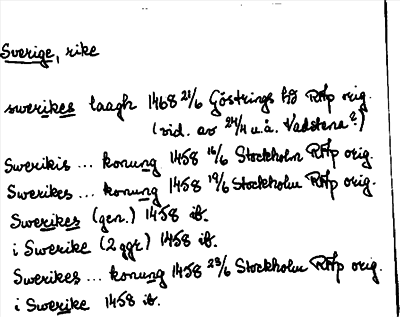 Sverige, rike
swerikes laagh 1468 21/6 Göstrings hd RAp orig.
(vid. av 24/4 u.å. Vadstena?)
Swerikis ... konung 1458 16/6 Stockholm RAp orig.
Swerikes ... konung 1458 19/6 Stockholm RAp orig.
Swerikes (gen.) 1458 ib.
i Swerike (2 ggr) 1458 ib.
Swerikes ... konung 1458 23/6 Stockholm RAp orig.
i Swerike 1458 ib.